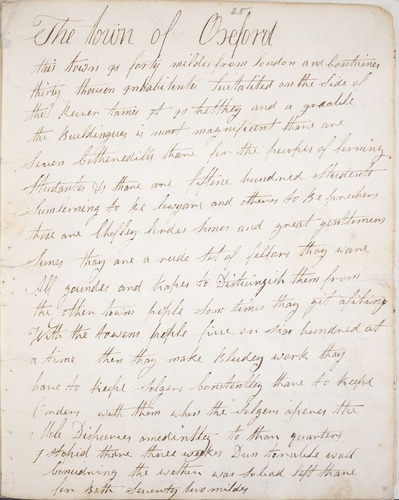 25
The town of Oxford
this town is forty miles from london and containes
thirty thousen inhabitents Suitatited on the Side of
the River tames it is helthey and a
the Buildingues is most magnificent thare are
Seven thare for the purpes of lerning
Studantes & thare are fiftene hundred Studients
Sum lerning to be lawyars and otheres to Be prechers
those are Chefley lordes sones and great gentlemens
Sunes thay are a rude set of fellars thay ware
All goundes and Kapes to Distinguish them from
the other towns people som times thay git afiting
With the towens people five or six hundred at
a time then thay make Bludey work thay
have to keepe Solgers Constentley thare to keepe
them when the Solgers aperes the
Mob Dispuries amedintley to thare quarters
I stopid thare three weekes Dun torrable well
Considring the wether was so bad left thare
for Bath Seventy two miles